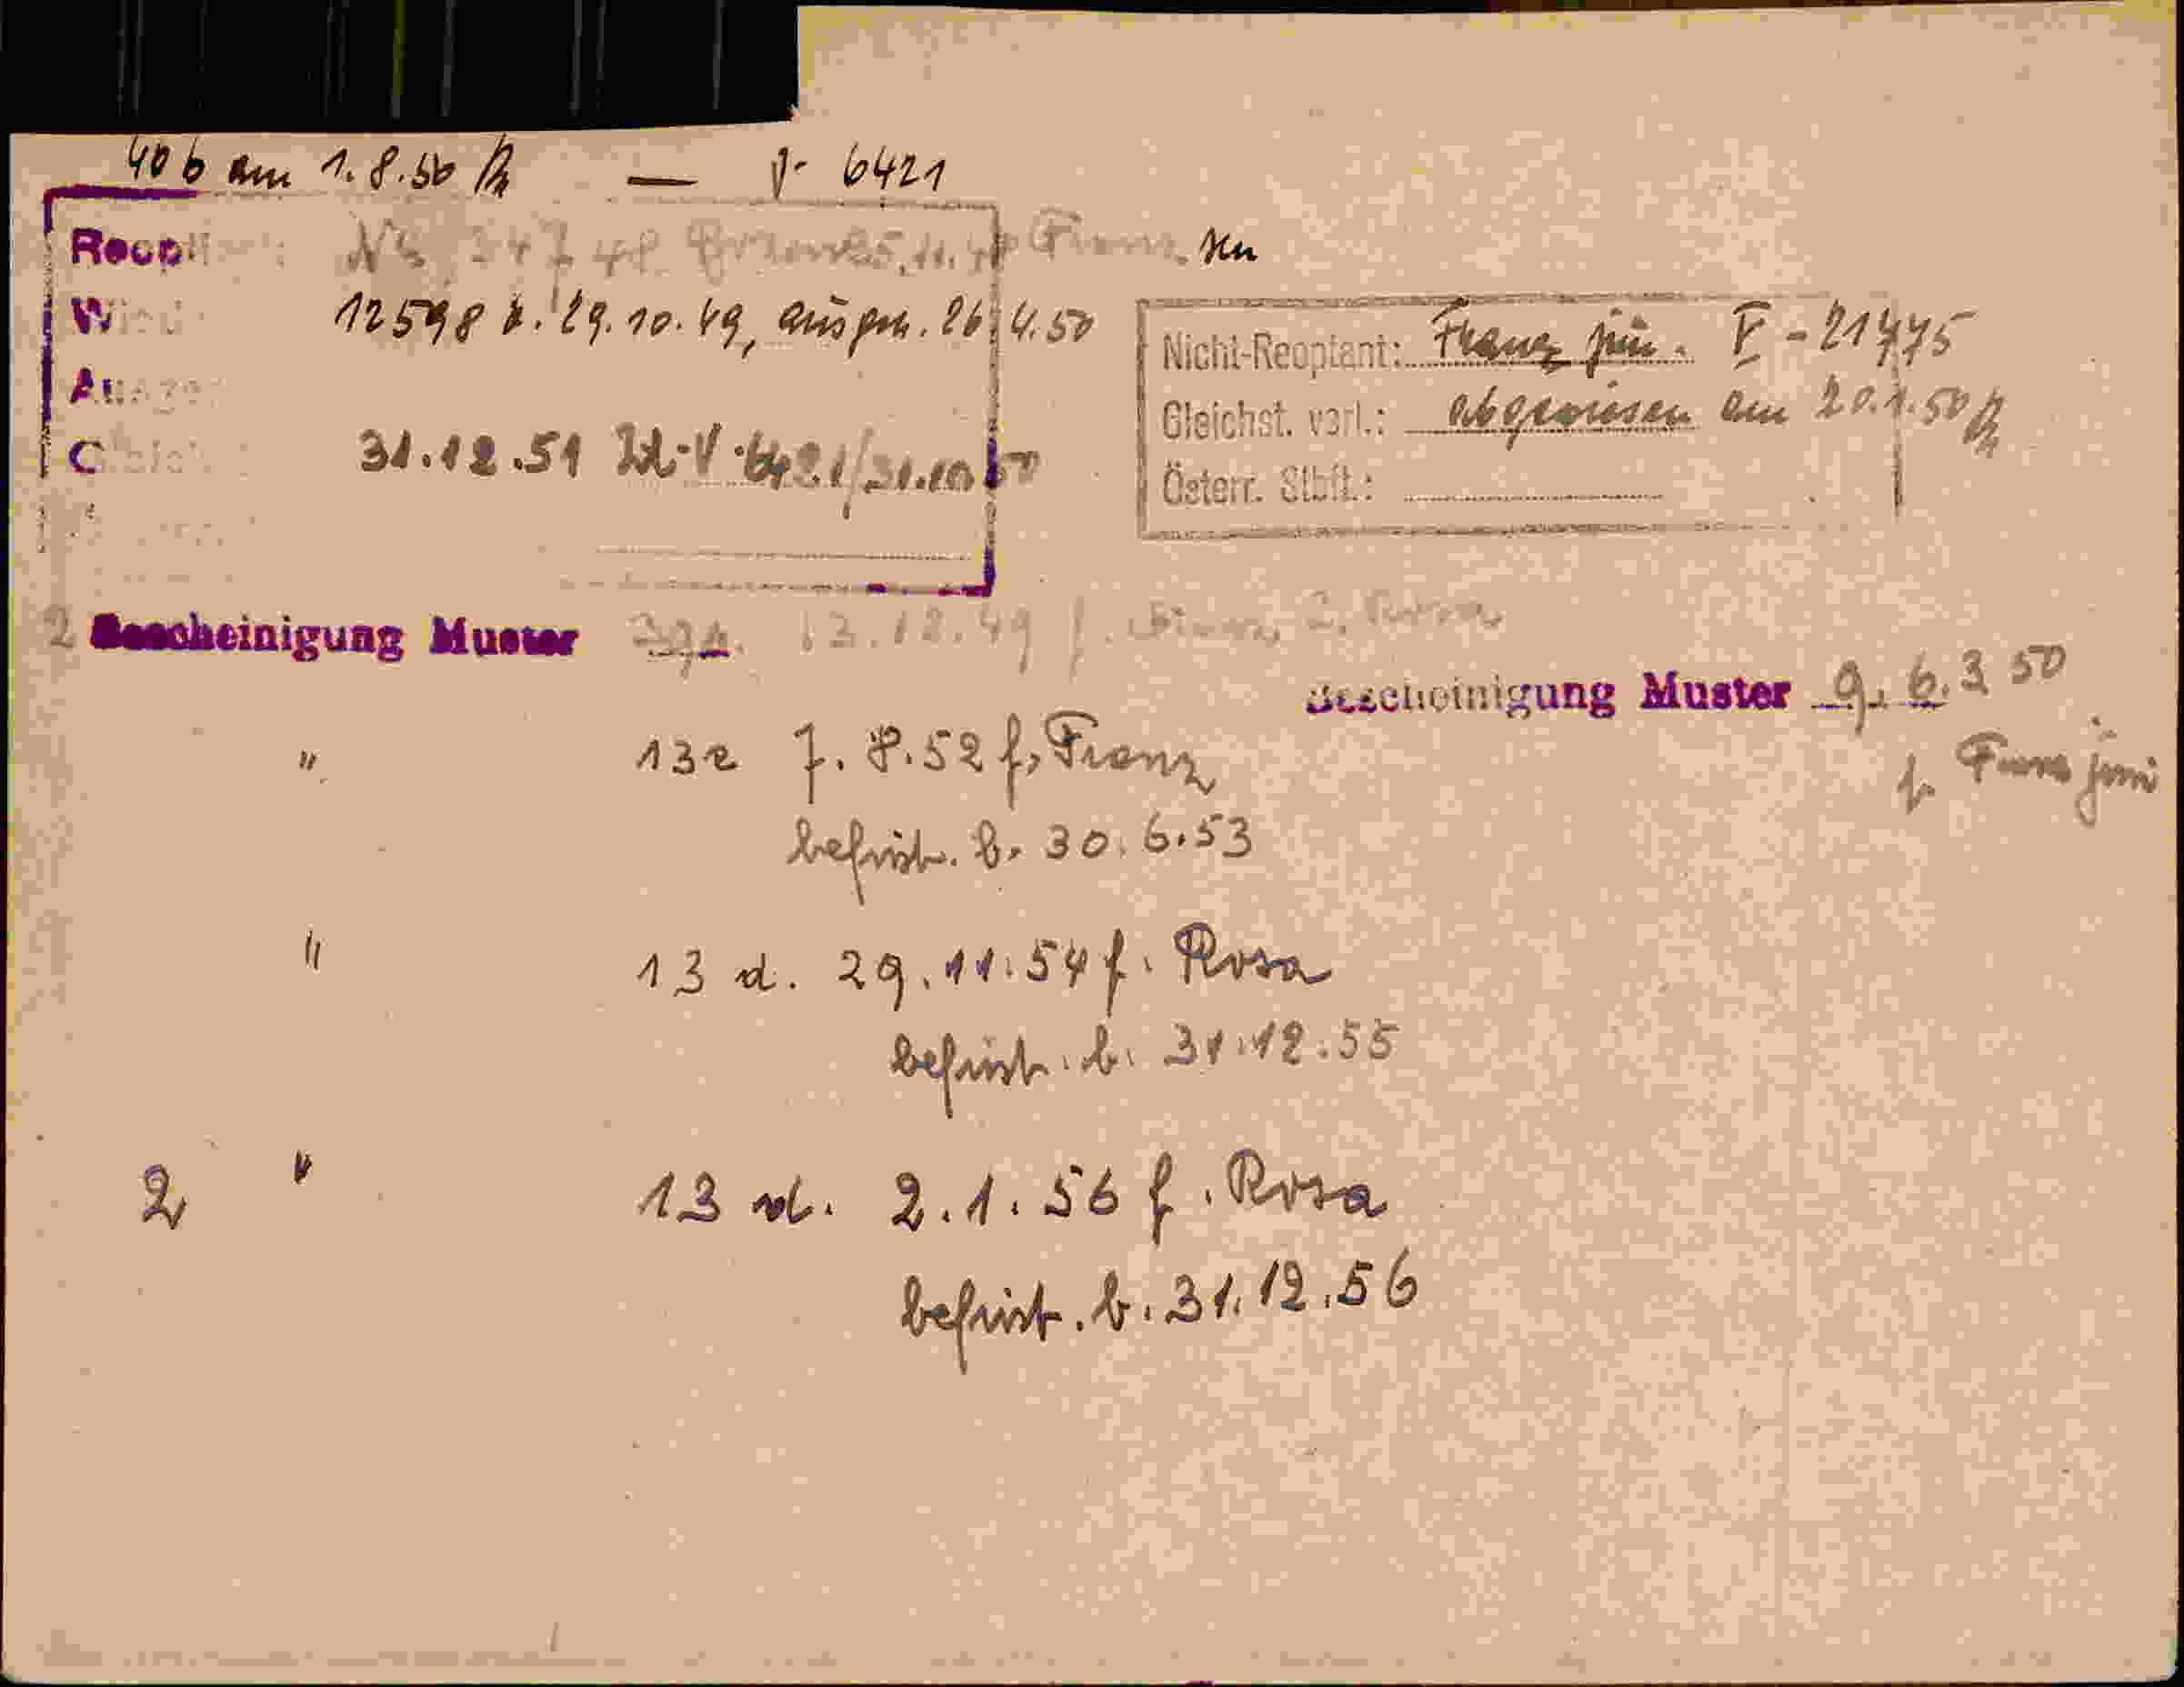 40 b am 1.8.50 — V- 6421
Reopt
12598 v. 29.10.49, ausgeh. 26.4.50
31.12.51 V. 6421/31.10.50
Nicht-Reoptant: Franz jun. V - 21775
Gleichst. vorl.: abgewiesen am 20.1.50
Österr. Stbft.:
2 Bescheinigung Muster 13.12.49 f.
Bescheinigung Muster 9. 6.3.50
f. Franz jun
" 13e 7.8.52 f. Franz
befrist. b. 30.6.53
" 13 d. 29.11.54 f. Rosa
befrist. b. 31.12.55
2 " 13 d. 2.1.56 f. Rosa
befrist. b. 31.12.56